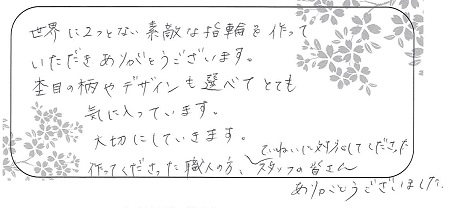 世界に2つとない素敵な指輪を作って
いただきありがとうございます。
杢目の柄やデザインも選べてとても
気に入っています。
大切にしていきます。
ていねいに対応してくださった
作ってくださった職人の方、スタッフの皆さん
ありがとうございました。